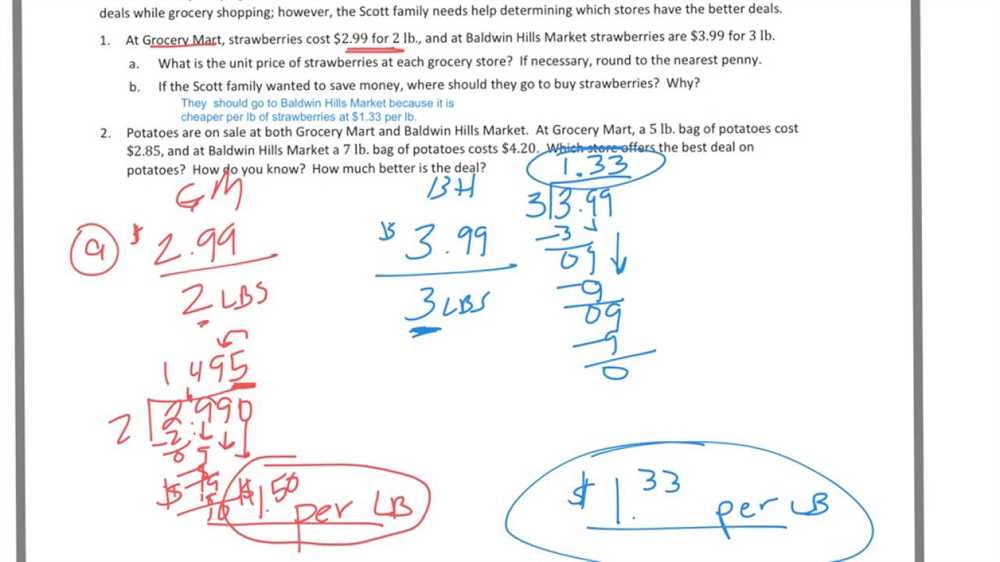 deals while grocery shopping; however, the Scott family needs help determining which stores have the better deals.
1. At Grocery Mart, strawberries cost $2.99 for 2 lb., and at Baldwin Hills Market strawberries are $3.99 for 3 lb.
a. What is the unit price of strawberries at each grocery store? If necessary, round to the nearest penny.
b. If the Scott family wanted to save money, where should they go to buy strawberries? Why?
They should go to Baldwin Hills Market because it is
cheaper per lb of strawberries at $1.33 per lb.
2. Potatoes are on sale at both Grocery Mart and Baldwin Hills Market. At Grocery Mart, a 5 lb. bag of potatoes cost
$2.85, and at Baldwin Hills Market a 7 lb. bag of potatoes costs $4.20. Which store offers the best deal on
potatoes? How do you know? How much better is the deal?
GM
a $ 2.99
2 LBS
1 495
2 2.990
-2
09
$1.50 per LB
BH
$ 3.99
3 LBS
1.33
3 3.99
-3
09
-9
09
-9
0
$1.33 per LB